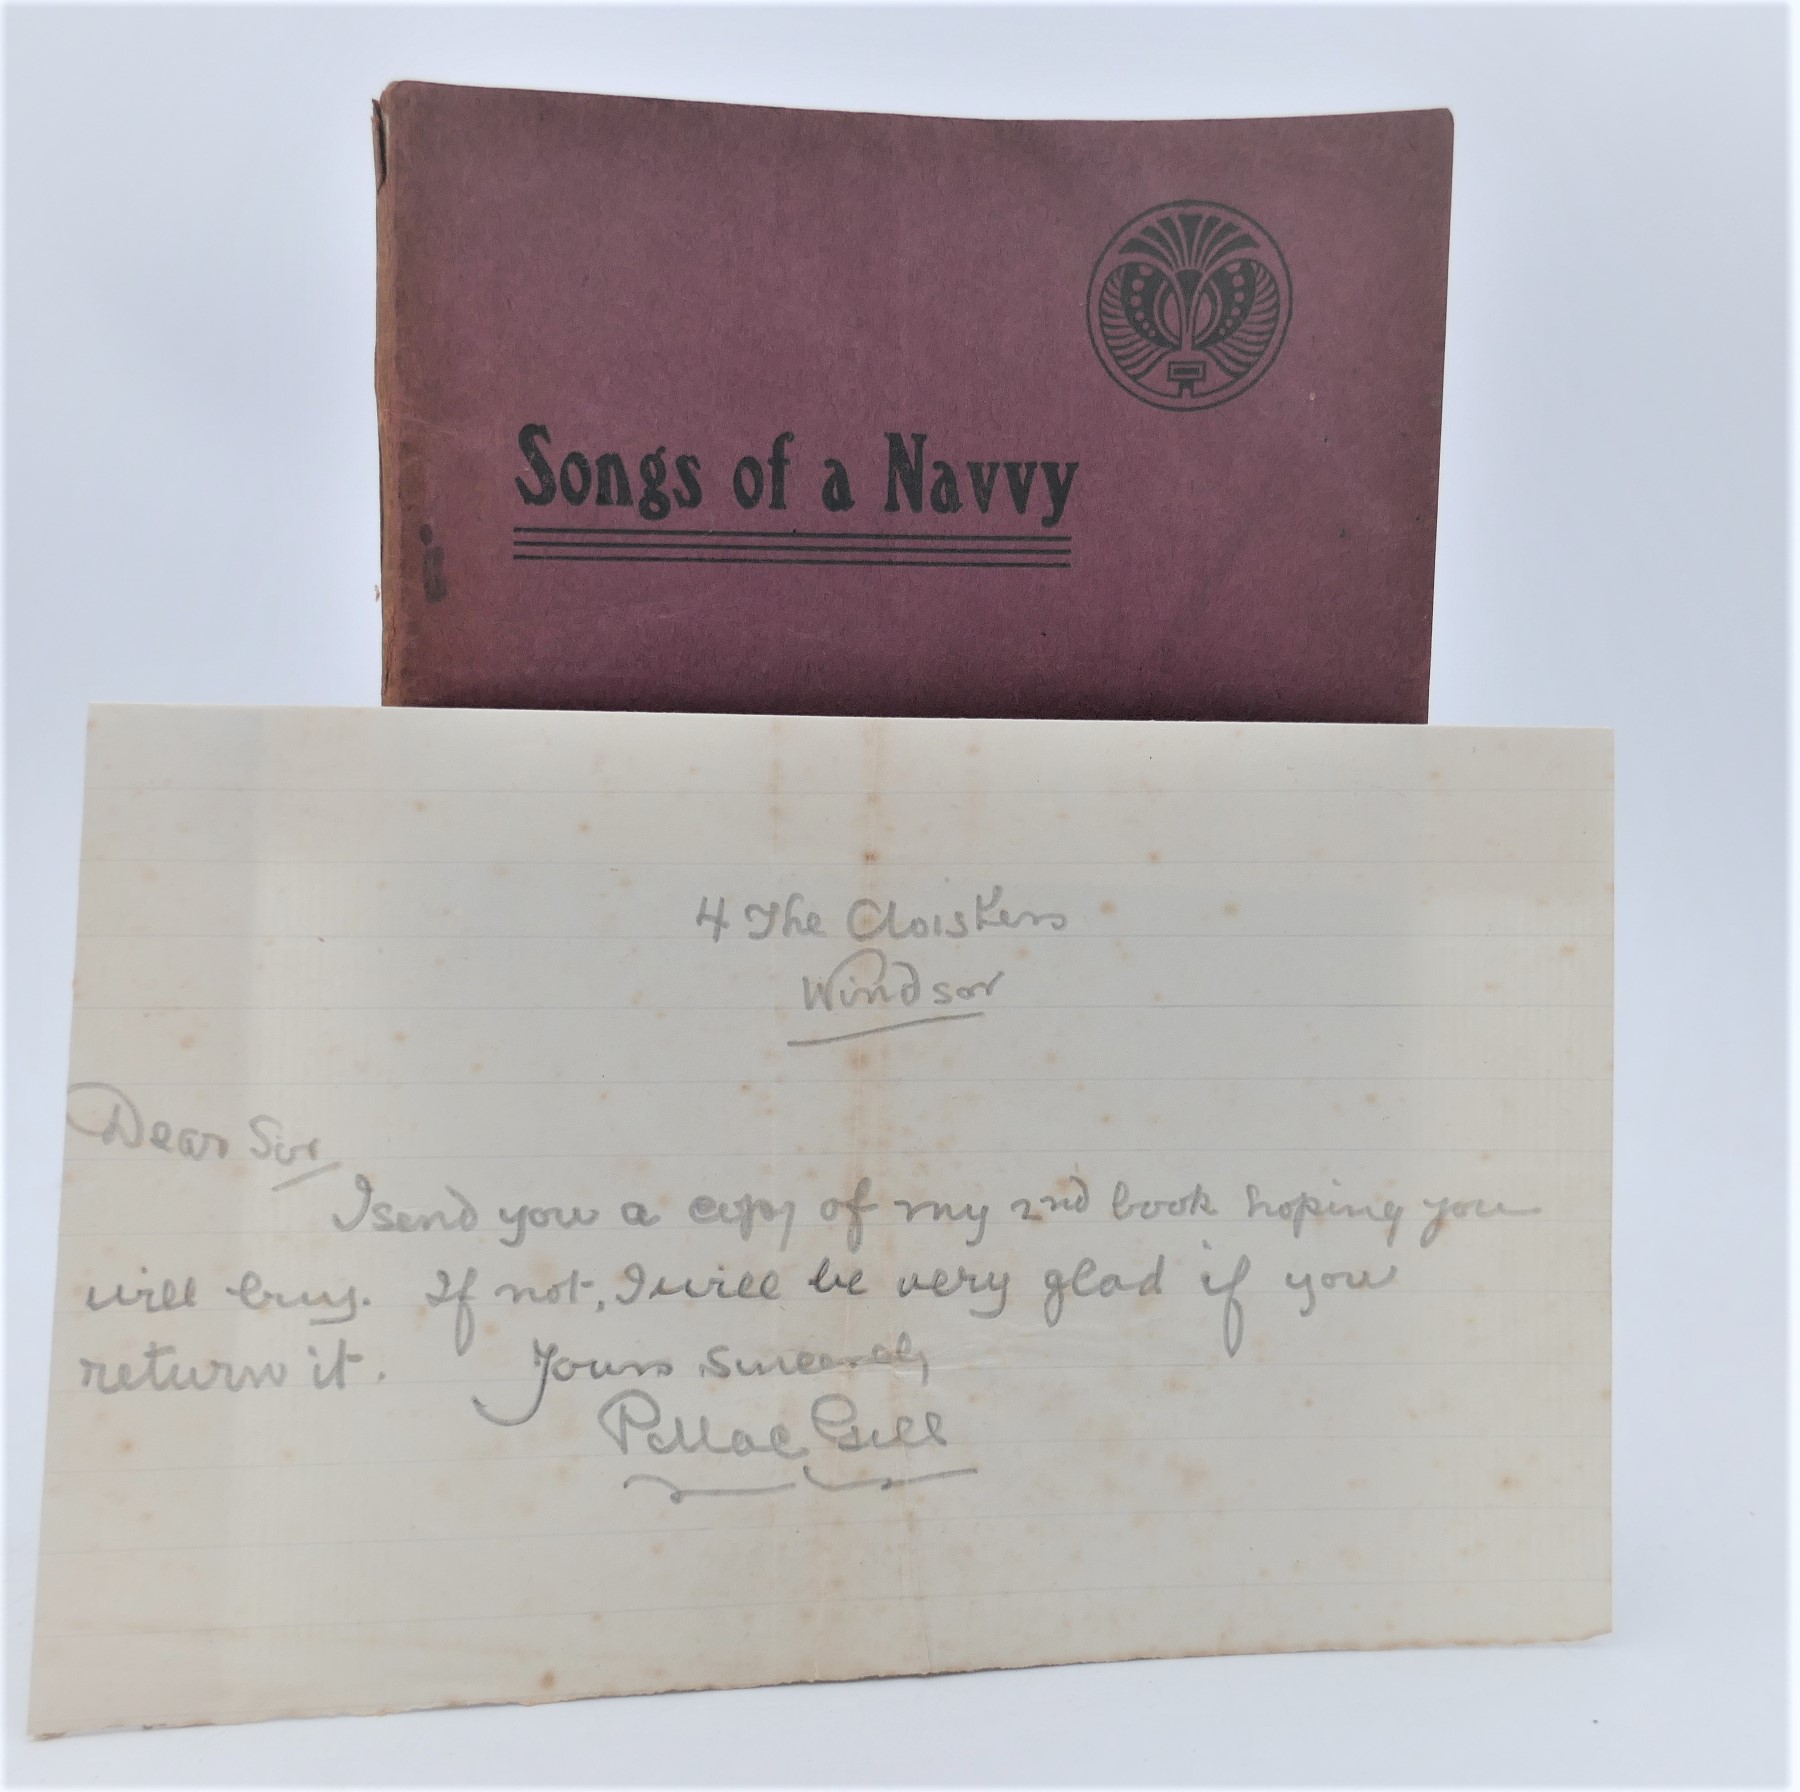 Songs of a Navvy
4 The Cloisters
Windsor
Dear Sir
I send you a copy of my 2nd book hoping you
will buy. If not, I will be very glad if you
return it. Yours sincerely,
P. MacGill